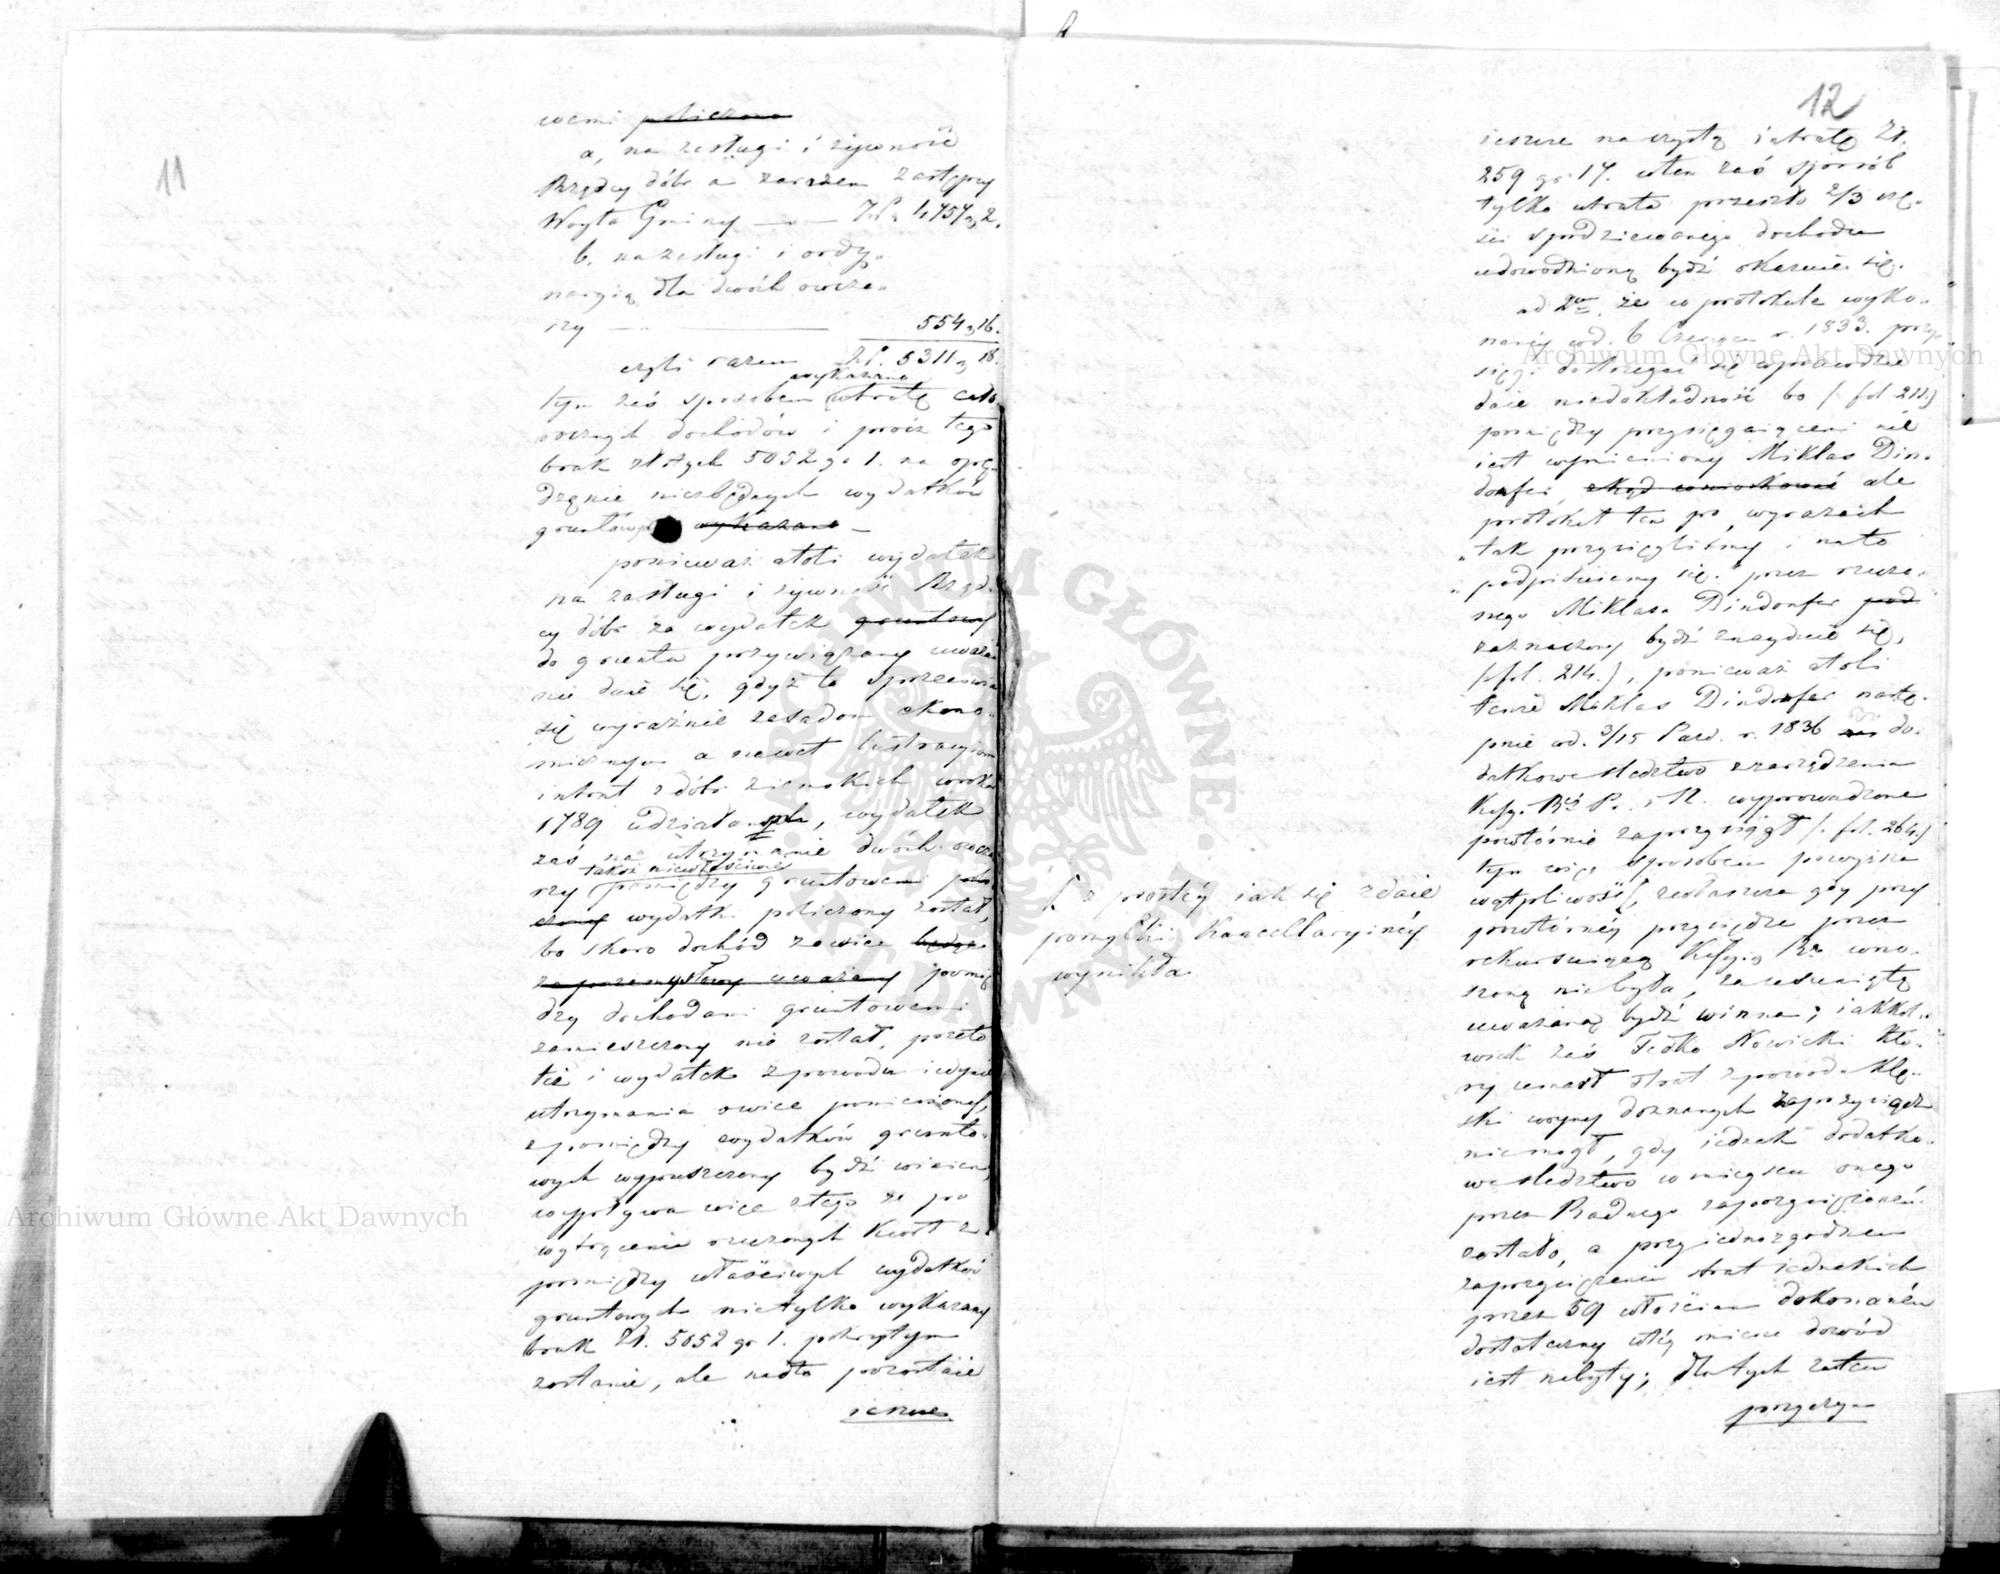 11
wemi policzono
a, na zasługi i żywność
Rządcy dóbr a zarazem Zastępcy
Woyta Gminy — Zł. 4757 " 2.
b. na zasługi i ordy-
naryią dla dwóch owcza-
rzy — 554 " 16.
czyli razem Zł. 5311 " 18.
wykazano
tym zaś sposobem utratę cało
rocznych dochodów i prócz tego
brak złotych 5052 gr 1. na opę-
dzenie niezbędnych wydatków
gruntowych wykazano —
ponieważ atoli wydatek
na zasługi i żywność Rząd-
cy dóbr za wydatek gruntowy
do gruntu przywiązany uważać
nie daie się, gdyż to sprzeciwia
się wyraźnie zasadom ekono-
micznym a nawet lustracyiom
intrat z dóbr ziemskich w roku
1789 , wydatek
zaś na utrzymanie dwóch owcza
także niewłaściwie
rzy pomiędzy gruntowemi
wydatki policzony został,
bo skoro dochód z owiec
za przemysłowy uważany pomię
dzy dochodami gruntowemi
zamieszczony nie został, przeto
też i wydatek z powodu iedynie
utrzymania owiec poniesiony,
z pomiędzy wydatków grunto-
wych wypuszczony bydź winien,
wypływa więc z tego że po
wytrąceniu rzeczonych kwot z
pomiędzy właściwych wydatków
gruntowych nietylko wykazany
brak Zł. 5052 gr 1. pokrytym
zostanie, ale nadto pozostaie
ieszcze
12
ieszcze na czystą intratę Zł.
259 gr. 17. w ten zaś sposób
tylko utrata przeszło 2/3 czę-
ści spodziewanego dochodu
udowodnioną bydź okazuie się.
ad 2um że w protokule wyko-
naney w d. 6 Czerwca r. 1833. przy-
sięgi dostrzegać się wprawdzie
daie niedokładność bo /: fol 211:/
pomiędzy przysięgaiącemi nie
iest wymieniony Miklas Din-
dorfer, zkąd wnioskować ale
protokół ten po wyrazach
„tak przysięgliśmy i na to
„podpisuiemy się." przez rzeczo-
nego Miklasa Dindorfer pod
zaznaczony bydź znayduie się,
/: fol. 214:/, ponieważ atoli
tenże Miklas Dindorfer nastę-
pnie w d. 3/15 Paźd. r. 1836 do-
datkowe śledztwo z zarządzenia
wyprowadzone
powtórnie zaprzysiągł /: fol. 264:/
tym więc sposobem powyższa
wątpliwość, zwłaszcza gdy przy
powtórnéy przysiędze przez
rekursuiącą wno-
szoną niebyła, za usuniętą
uważaną bydź winna; iakkol-
wiek zaś Fedko Nowicki któ-
ry umarł strat z powodu klę-
ski woyny doznanych zaprzysiądz
niemógł, gdy iednak dodatko-
we śledztwo w mieyscu onego
przez Radnego zaprzysiężonem
zostało, a przy iednozgodnem
zaprzysiężeniu strat iednakich
przez 59 włościan dokonaném
dostateczny w téy mierze dowód
iest nabyty; dla tych zatem
przyczyn
z prostéy iak się zdaie
pomyłki Kancellaryinéy
wynikła
Archiwum Główne Akt Dawnych
Archiwum Główne Akt Dawnych
ARCHIWUM GŁÓWNE AKT DAWNYCH